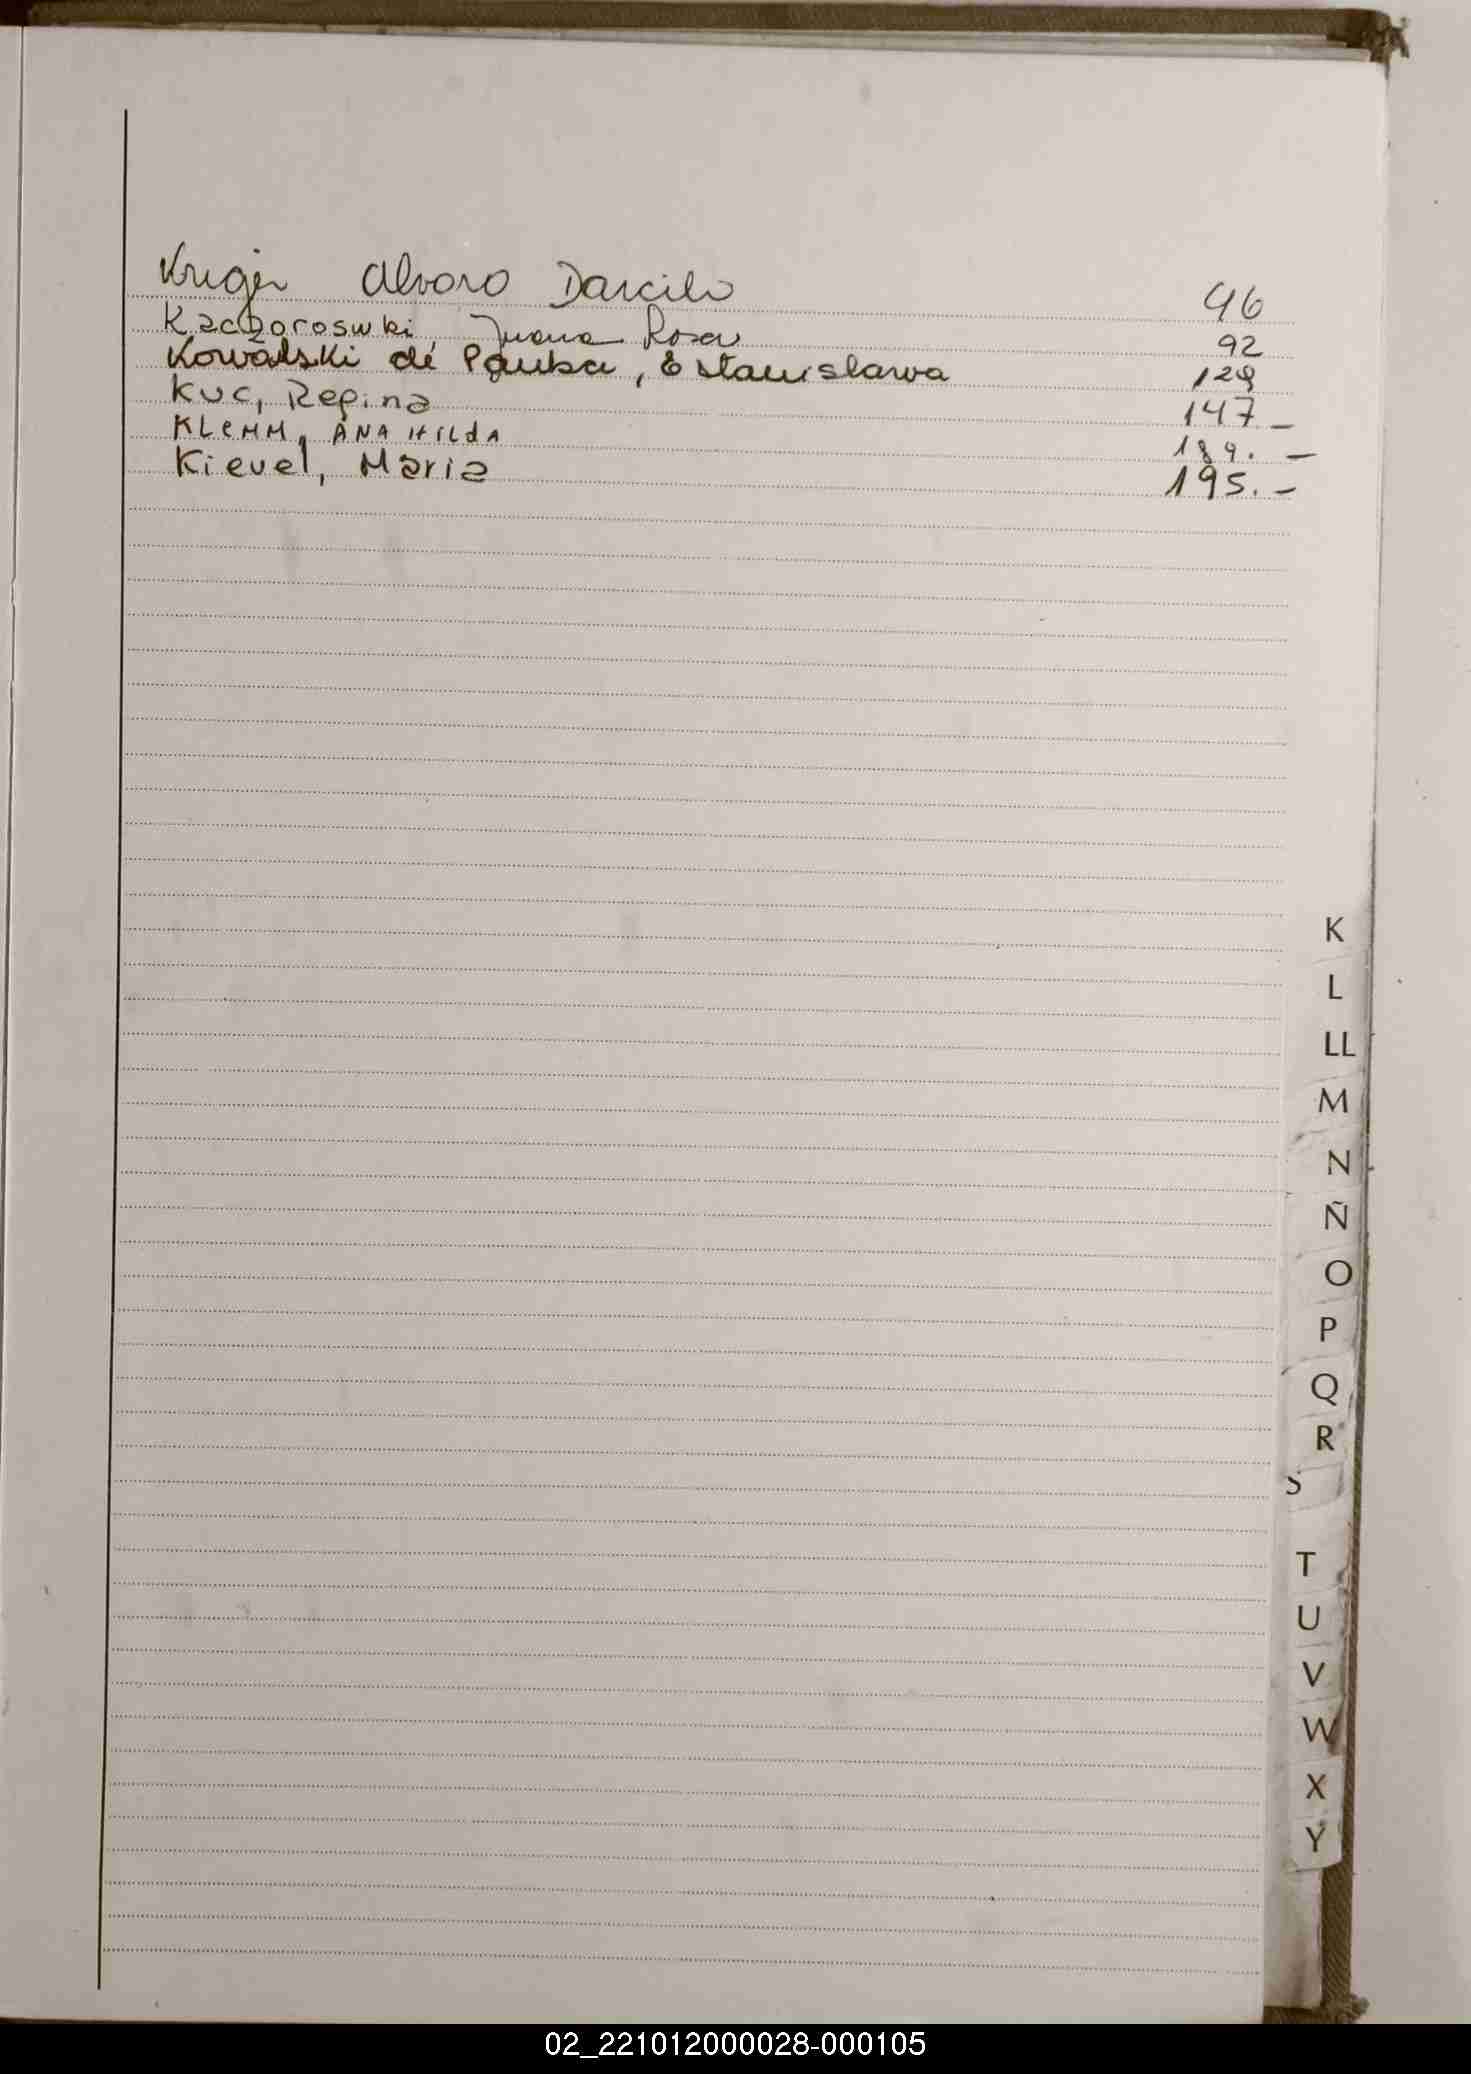 Kruger Alvaro Darcilo 46
Kaczoroswki, Juana Rosa 92
Kowalski de Pauba, Estanislawa 129
Kuc, Regina 147 –
KLEMM, ANA HILdA 189. –
Kievel, Maria 195. –
K
L
LL
M
N
Ñ
O
P
Q
R
S
T
U
V
W
X
Y
02_221012000028-000105